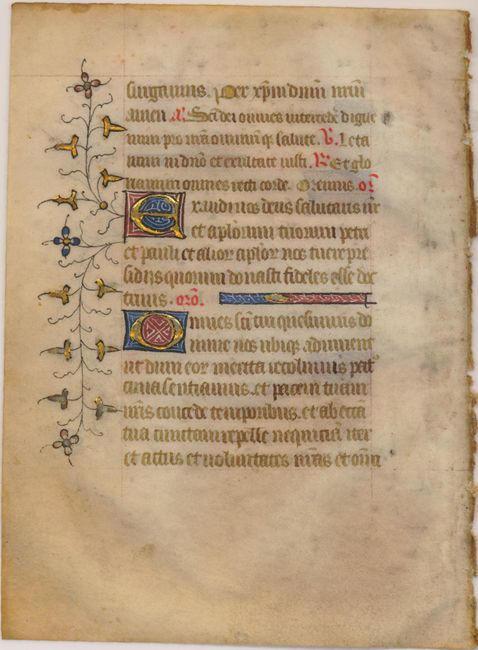 surgamus. Per xpm dnm nrm
amen A Scti dei omnes intercede digne
mini pro nra omniumq; salute. V. Leta
mini in dno et exultate iusti. R Et glo
riamini omnes recti corde. Oremus. or
Exaudi nos deus salutaris nr
et aplorum tuorum petri
et pauli et alior aplor nos tuere pre
sidiis quorum donasti fideles esse doc
trinis. oro.
Omnes sci tui quesumus do
mine nos ubiq; adiuuent
ut dum eor merita recolimus patro
cinia sentiamus. et pacem tuam
nris concede temporibus. et ab eccla
tua cunctam repelle nequiciam iter
et actus et voluntates nras et omi